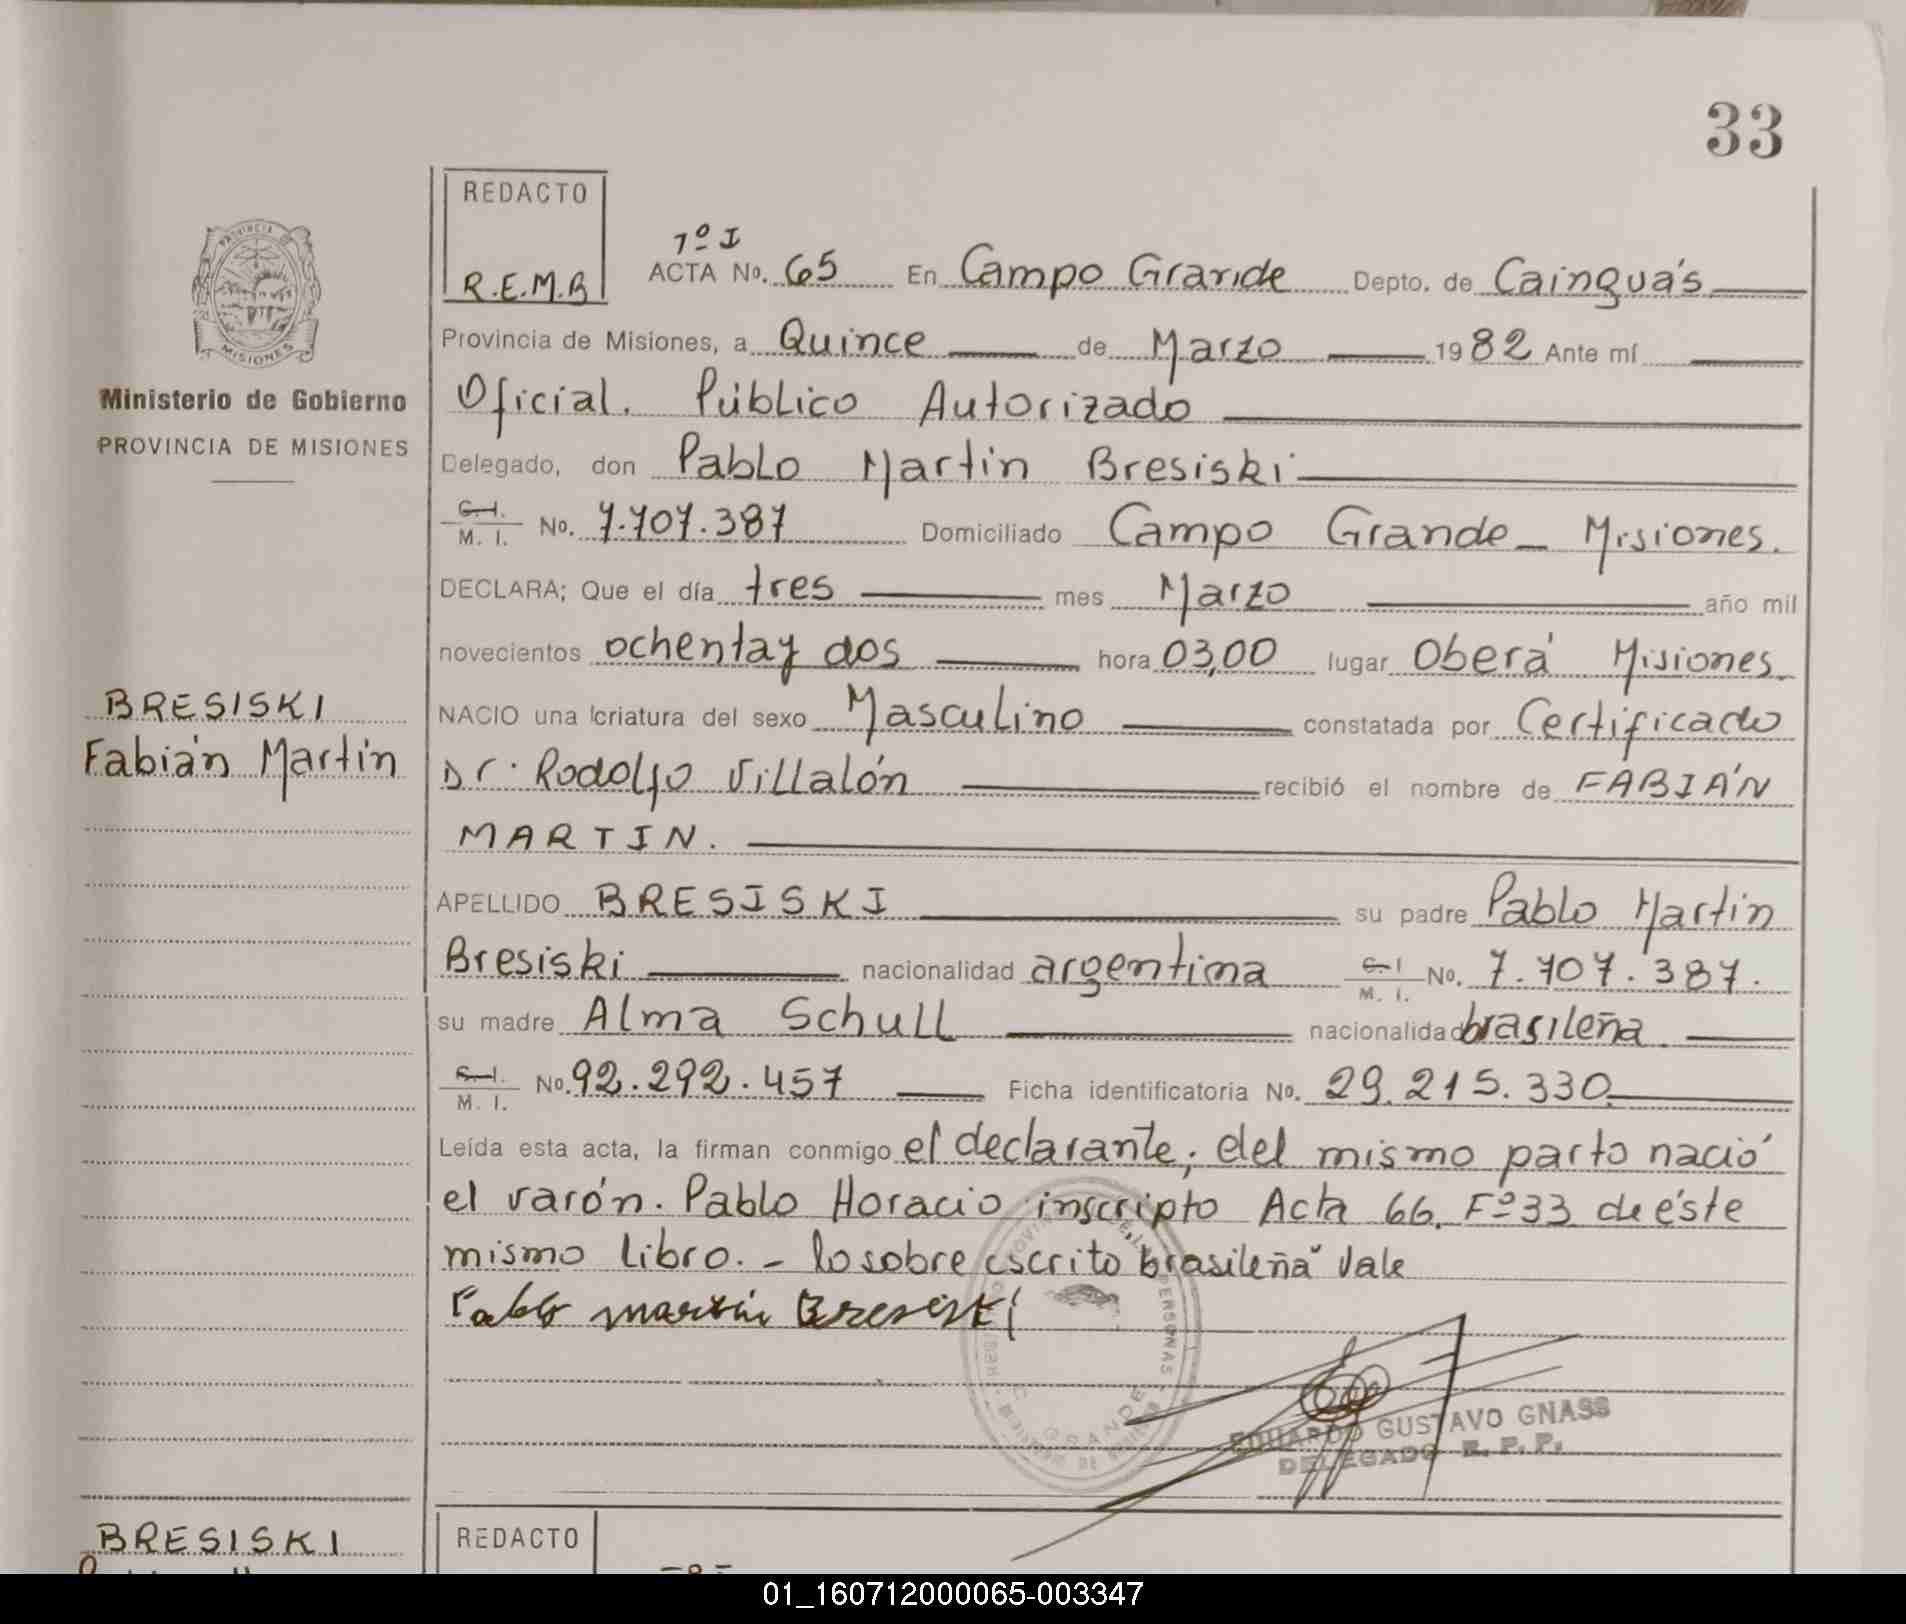 33
REDACTO
R.E.M.B
1º I
ACTA No. 65 En Campo Grande Depto. de Cainguás
Provincia de Misiones, a Quince de Marzo 1982 Ante mí
Oficial. Público Autorizado
Delegado, don Pablo Martin Bresiski
C.I. M. I. No. 7.707.387 Domiciliado Campo Grande - Misiones.
DECLARA; Que el día tres mes Marzo año mil
novecientos ochenta y dos hora 03,00 lugar Oberá Misiones
NACIO una criatura del sexo Masculino constatada por Certificado
Dr. Rodolfo Villalón recibió el nombre de FABIÁN
MARTIN.
APELLIDO BRESISKI su padre Pablo Martin
Bresiski nacionalidad argentina C.I M. I. No. 7.707.387.
su madre Alma Schull nacionalidad brasileña
C.I. M. I. No. 92.292.457 Ficha identificatoria No. 29.215.330
Leída esta acta, la firman conmigo el declarante; del mismo parto nació
el varón. Pablo Horacio inscripto Acta 66. Fº33 de éste
mismo libro. - lo sobre escrito brasileña" Vale
Pablo Martin Bresiski
EDUARDO GUSTAVO GNASS
DELEGADO R. P. P.
PROVINCIA
MISIONES
Ministerio de Gobierno
PROVINCIA DE MISIONES
BRESISKI
Fabián Martín
PERSONAS
C. GRANDE
BRESISKI
REDACTO
01_160712000065-003347